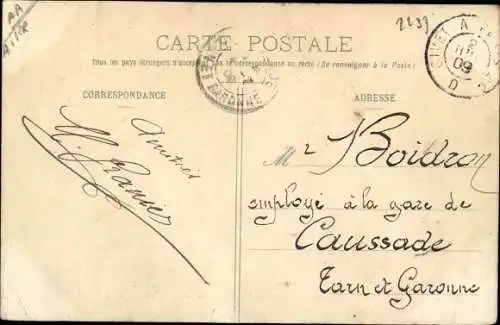 2237
CARTE POSTALE
Tous les pays étrangers n'acceptent pas la correspondance au recto (Se renseigner à la Poste)
CORRESPONDANCE
ADRESSE
Amitiés
Mr Boidron
employé à la gare de
Caussade
Tarn et Garonne
GARONNE
09